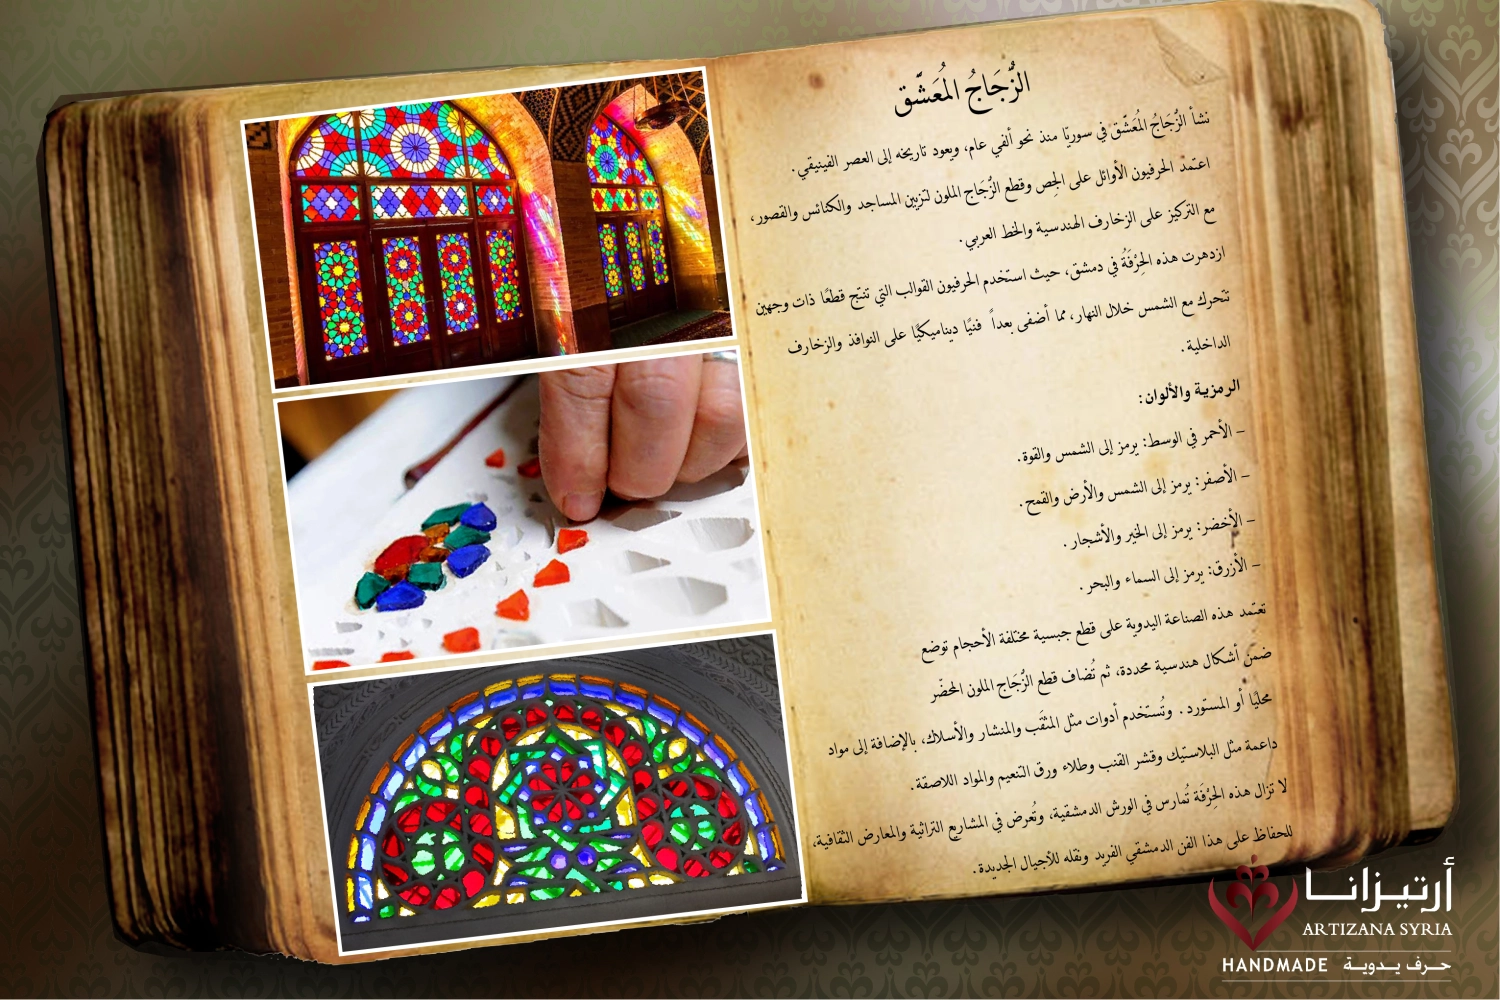 الزُّجَاجُ المُعَشّق
نشأ الزُّجَاجُ المُعَشّق في سوريّا منذ نحو ألفي عام، ويعود تاريخه إلى العصر الفينيقي.
اعتمدَ الحرفيون الأوائل على الجِص وقطع الزُّجَاج الملون لتزيين المساجد والكنائس والقصور،
مع التركيز على الزخارف الهندسية والخط العربي.
ازدهرت هذه الحِرْفَةُ في دمشق، حيث استخدم الحرفيون القوالب التي تنتج قطعًا ذات وجهين
تتحرك مع الشمس خلال النهار، مما أضفى بعداً فنيًا ديناميكيًا على النوافذ والزخارف
الداخلية.
الرمزية والألوان:
– الأحمر في الوسط: يرمز إلى الشمس والقوة.
– الأصفر: يرمز إلى الشمس والأرض والقمح.
– الأخضر: يرمز إلى الخير والأشجار.
– الأزرق: يرمز إلى السماء والبحر.
تعتمد هذه الصناعة اليدوية على قطع جبسية مختلفة الأحجام توضع
ضمن أشكال هندسية محددة، ثم تُضاف قطع الزُّجَاج الملون المحضّر
محليًا أو المستورد. وتُستخدم أدوات مثل المثقَب والمنشار والأسلاك، بالإضافة إلى مواد
داعمة مثل البلاستيك وقشر القنب وطلاء ورق التنعيم والمواد اللاصقة.
لا تزال هذه الحِرْفَة تُمارس في الورش الدمشقية، وتُعرض في المشاريع التراثية والمعارض الثقافية،
للحفاظ على هذا الفن الدمشقي الفريد ونقله للأجيال الجديدة.
أرتيزانا
ARTIZANA SYRIA
HANDMADE حرف يدوية